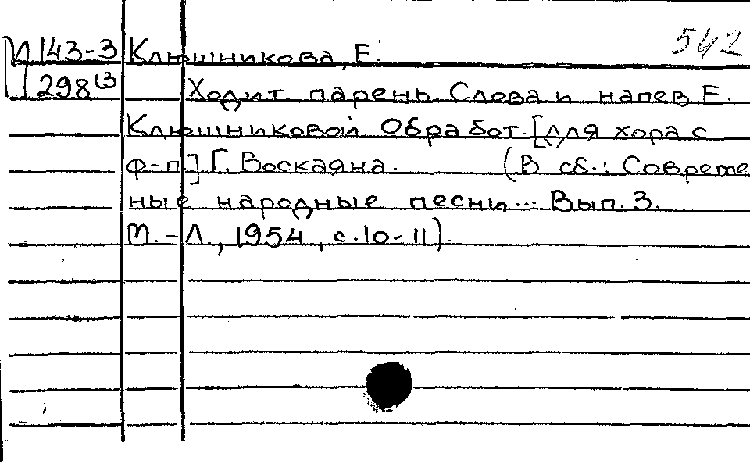 542
М 143-3 Клюшникова, Е.
298(3 Ходит парень. Слова и напев Е.
Клюшниковой. Обработ. [для хора с
ф-п.] Г. Воскаяна. (В сб.: Совреме
ные народные песни... Вып. 3.
М.-Л., 1954, с. 10-11).